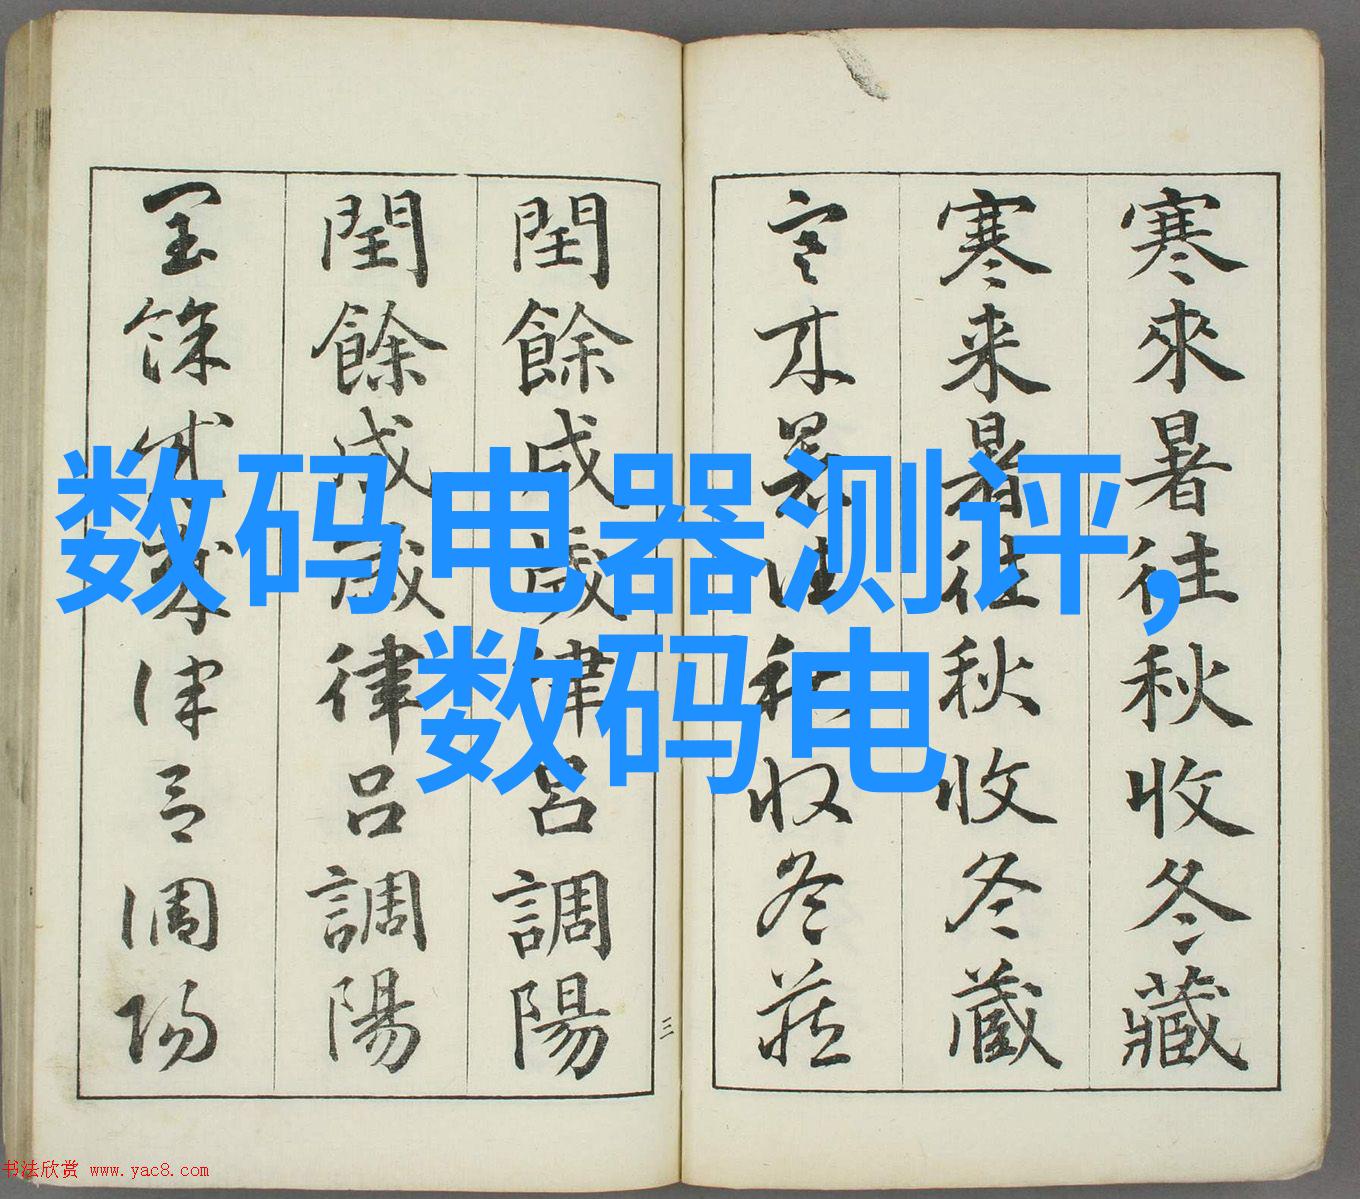 寒來暑往秋收冬藏
寒来暑往秋收冬蔵
寒来暑往秋收冬藏
閏餘成歲律呂調陽
閏餘成歲律呂調陽
閏餘成歲律呂調陽
三
数码电器测评，
数码电
书法欣赏 www.yac8.com